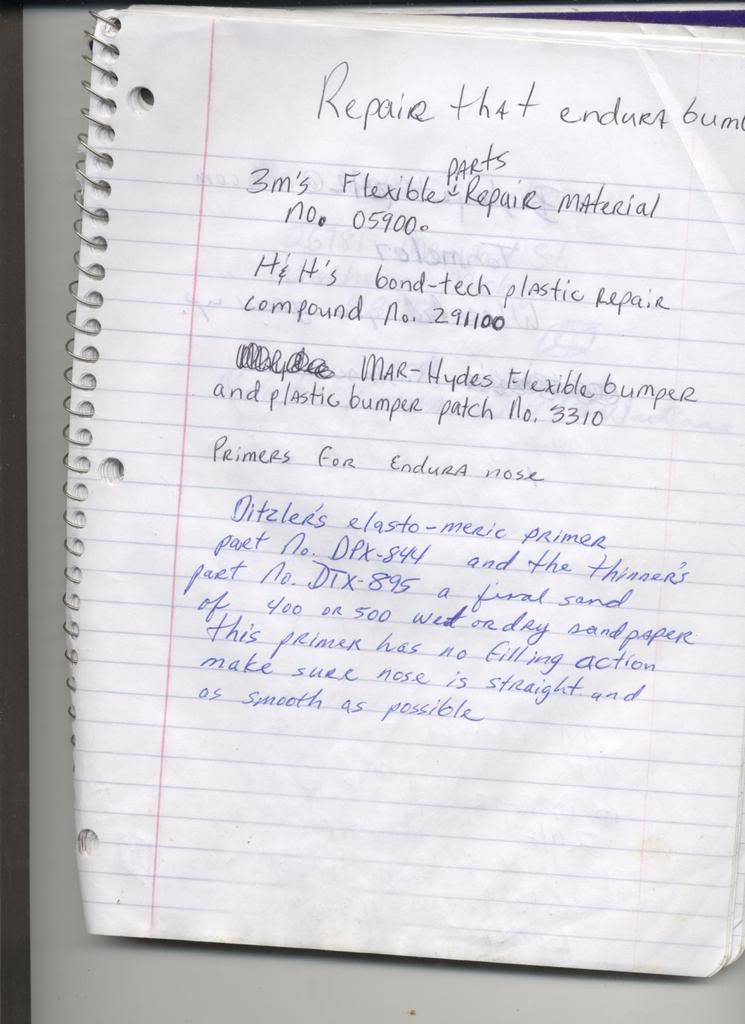 Repair that endura bum
parts
3m's Flexible Repair Material
no. 05900.
H & H's bond-tech plastic Repair
compound No. 291100
MAR-Hydes Flexible bumper
and plastic bumper patch No. 3310
Primers For Endura nose
Ditzler's elasto-meric primer
part No. DPX-844 and the thinner's
part No. DTX-895 a final sand
of 400 or 500 wet or dry sand paper
this primer has no filling action
make sure nose is straight and
as smooth as possible